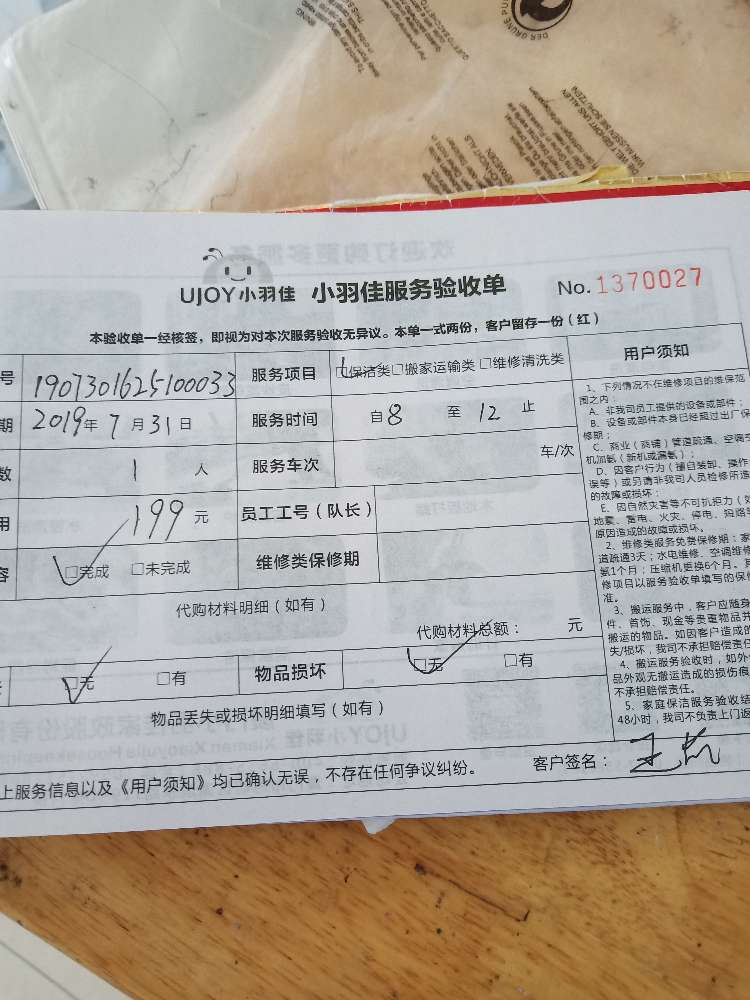 DER GRÜNE PU
DIE WELT GEHÖRT UNS ALLEN
WIR MÜSSEN SIE SCHÜTZEN!
UJOY小羽佳 小羽佳服务验收单 No.1370027
本验收单一经核签，即视为对本次服务验收无异议。本单一式两份，客户留存一份（红）
号 1907301625100033 服务项目 □保洁类□搬家运输类□维修清洗类
期 2019年7月31日 服务时间 自8至12止
数 1人 服务车次 车/次
用 199元 员工工号（队长）
容 □完成 □未完成 维修类保修期
代购材料明细（如有）
代购材料总额： 元
□无 □有 物品损坏 □无 □有
物品丢失或损坏明细填写（如有）
上服务信息以及《用户须知》均已确认无误，不存在任何争议纠纷。 客户签名：
用户须知
1、下列情况不在维修项目的维保范
围之内：
A、非我司员工提供的设备或部件；
B、设备或部件本身已经超过出厂保
修期；
C、商业（商铺）管道疏通、空调
机加氨（新机或漏氨）；
D、因客户行为（擅自装卸、操作
误等）或另请非我司人员检修所造
的故障或损坏；
E、因自然灾害等不可抗拒力（如
地震、雷电、火灾、停电、短路等
原因造成的故障或损坏。
2、维修类服务免费保修期：家
道疏通3天；水电维修、空调维修
氨1个月；压缩机更换6个月。其
修项目以服务验收单填写的保修
准。
3、搬运服务中，客户应随身
件、首饰、现金等贵重物品并
搬运的物品。如因客户造成的
失/损坏，我司不承担赔偿责任
4、搬运服务验收时，如外
品外观无搬运造成的损伤痕
不承担赔偿责任。
5、家庭保洁服务验收结
48小时，我司不负责上门返